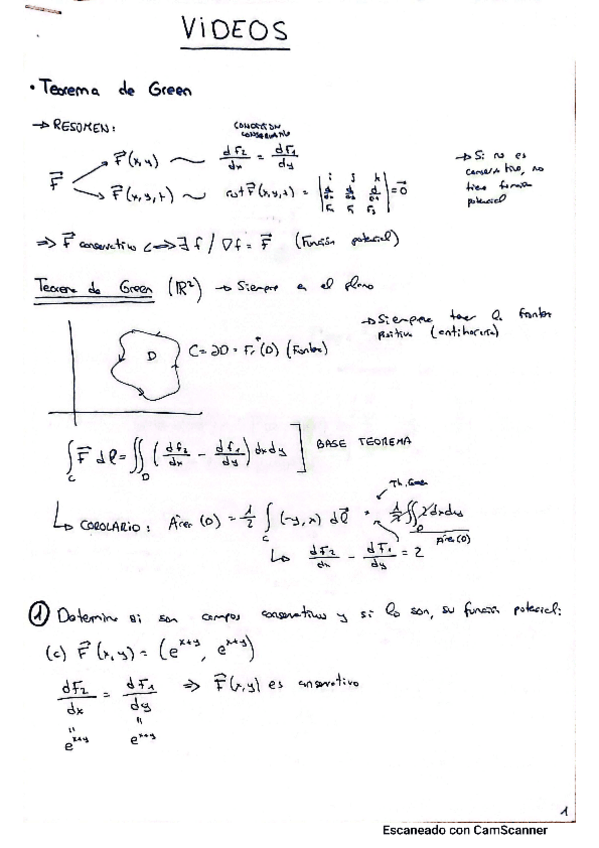 VIDEOS
• Teorema de Green
→ RESUMEN:
CONDICION CONSERVATIVO
F⃗ → F⃗(x,y) ~ dF2/dx = dF1/dy
F⃗ → F⃗(x,y,z) ~ rot F⃗(x,y,z) = | i j k ; d/dx d/dy d/dz ; F1 F2 F3 | = 0⃗
→ Si no es
conservativo, no
tiene función
potencial
⇒ F⃗ conservativo <=> ∃ f / ∇f = F⃗ (Función potencial)
Teorema de Green (R²) → Siempre en el plano
→ Siempre tener la frontera
positiva (antihoraria)
D
C = ∂D = Fr⁺(D) (Frontera)
∫_C F⃗ dl = ∬_D (dF2/dx - dF1/dy) dxdy ] BASE TEOREMA
Th. Green
↳ COROLARIO: Área (D) = 1/2 ∫_C (-y, x) dl⃗ = 1/2 ∬_D 2 dxdy
Área (D)
↳ dF2/dx - dF1/dy = 2
① Determine si son campos conservativos y si lo son, su función potencial:
(c) F⃗(x,y) = (e^{x+y}, e^{x+y})
dF2/dx = dF1/dy ⇒ F⃗(x,y) es conservativo
= =
e^{x+y} e^{x+y}
1
Escaneado con CamScanner